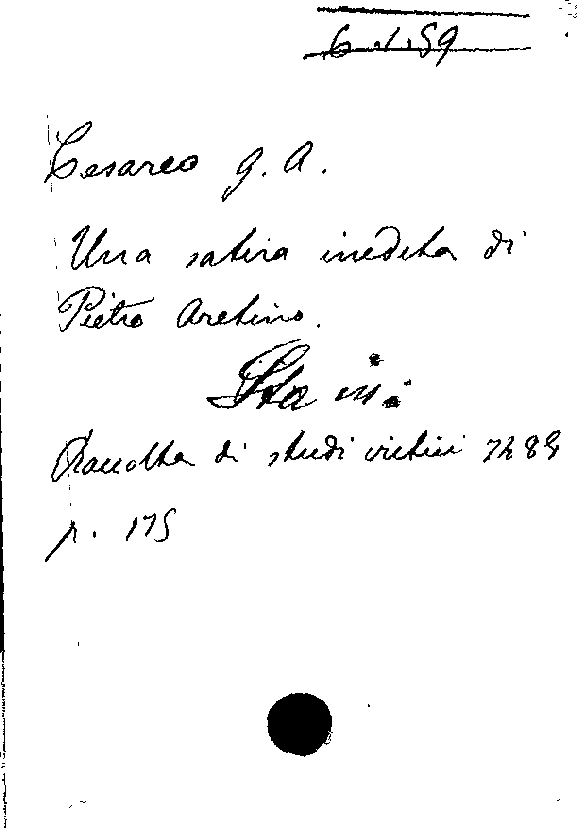 6.1.59
Cesareo G. A.
Una satira inedita di
Pietro Aretino.
Sta in:
Raccolta di studi critici
p. 175